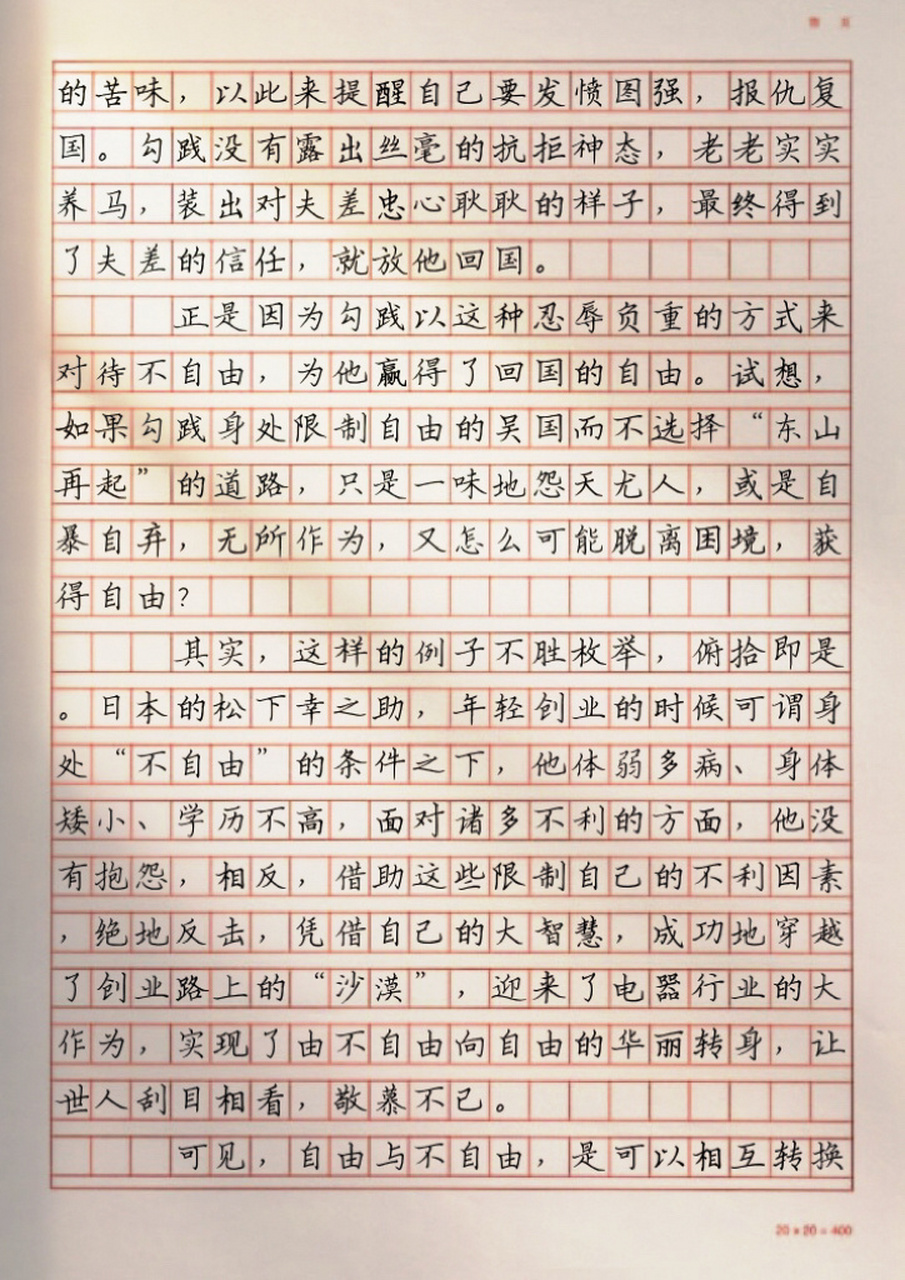 的苦味，以此来提醒自己要发愤图强，报仇复
国。勾践没有露出丝毫的抗拒神态，老老实实
养马，装出对夫差忠心耿耿的样子，最终得到
了夫差的信任，就放他回国。
正是因为勾践以这种忍辱负重的方式来
对待不自由，为他赢得了回国的自由。试想，
如果勾践身处限制自由的吴国而不选择“东山
再起”的道路，只是一味地怨天尤人，或是自
暴自弃，无所作为，又怎么可能脱离困境，获
得自由？
其实，这样的例子不胜枚举，俯拾即是
。日本的松下幸之助，年轻创业的时候可谓身
处“不自由”的条件之下，他体弱多病、身体
矮小、学历不高，面对诸多不利的方面，他没
有抱怨，相反，借助这些限制自己的不利因素
，绝地反击，凭借自己的大智慧，成功地穿越
了创业路上的“沙漠”，迎来了电器行业的大
作为，实现了由不自由向自由的华丽转身，让
世人刮目相看，敬慕不已。
可见，自由与不自由，是可以相互转换
20×20=400